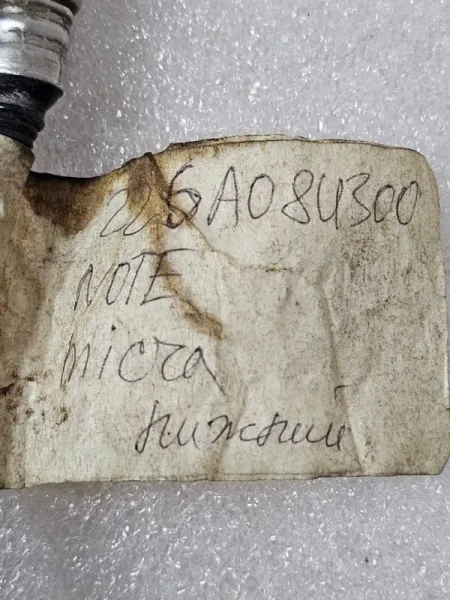 226A084300
NOTE
micra
нижний